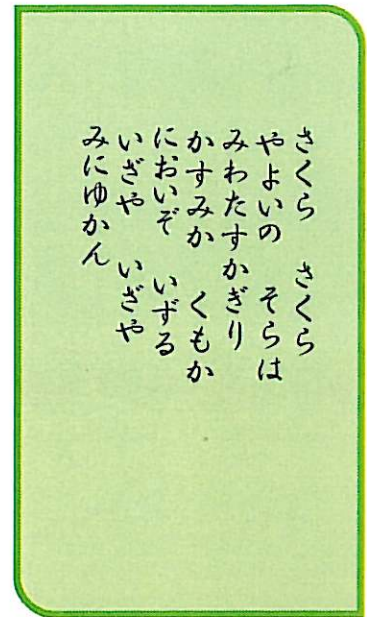 さくら　さくら
やよいの　そらは
みわたすかぎり
かすみか　くもか
においぞ　いずる
いざや　いざや
みにゆかん